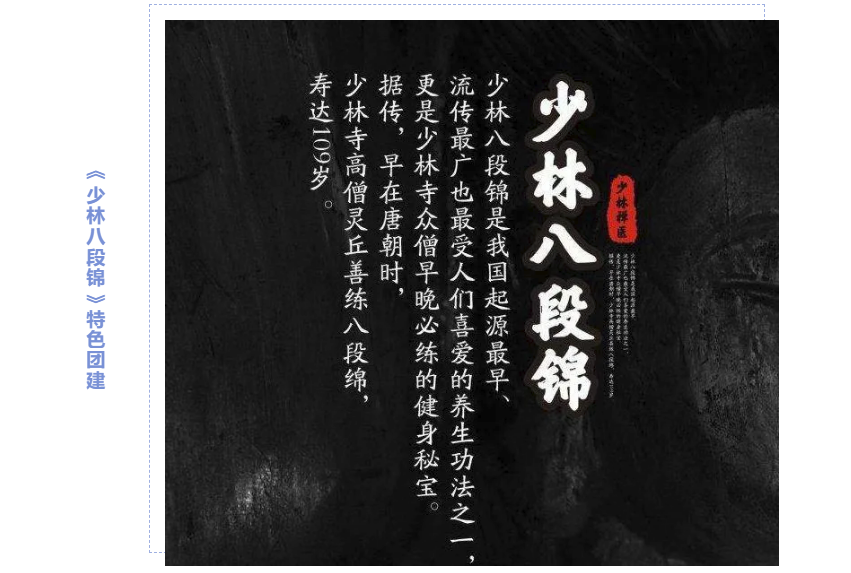 《少林八段锦》特色团建
少林禅医
少林八段锦
少林八段锦是我国起源最早、
流传最广也最受人们喜爱的养生功法之一，
更是少林寺众僧早晚必练的健身秘宝。
据传，早在唐朝时，
少林寺高僧灵丘善练八段绵，
寿达109岁。